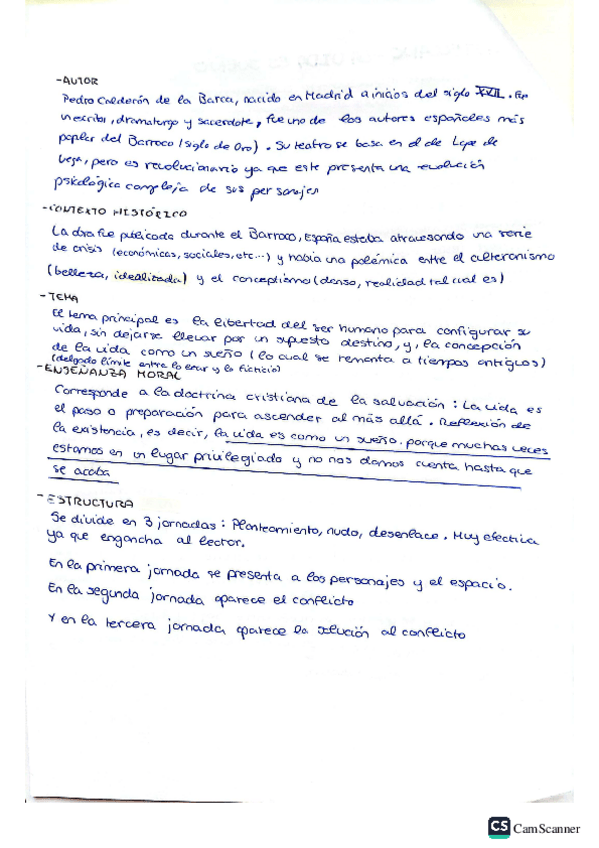 -AUTOR
Pedro Calderón de la Barca, nacido en Madrid a inicios del siglo XVII. Fue
un escritor, dramaturgo y sacerdote, fue uno de los autores españoles más
popular del Barroco (siglo de Oro). Su teatro se basa en el de Lope de
Vega, pero es revolucionario ya que este presenta una evolución
psicológica compleja de sus personajes
-CONTEXTO HISTÓRICO
La obra fue publicada durante el Barroco, España estaba atravesando una serie
de crisis (económicas, sociales, etc...) y había una polémica entre el culteranismo
(belleza, idealizada) y el conceptismo (denso, realidad tal cual es)
-TEMA
El tema principal es la libertad del ser humano para configurar su
vida, sin dejarse llevar por un supuesto destino, y, la concepción
de la vida como un sueño (lo cual se remonta a tiempos antiguos)
(delgado límite entre lo real y lo ficticio)
-ENSEÑANZA MORAL
Corresponde a la doctrina cristiana de la salvación: La vida es
el paso o preparación para ascender al más allá. Reflexión de
la existencia, es decir, la vida es como un sueño. porque muchas veces
estamos en un lugar privilegiado y no nos damos cuenta hasta que
se acaba
-ESTRUCTURA
Se divide en 3 jornadas: Planteamiento, nudo, desenlace. Muy efectiva
ya que engancha al lector.
En la primera jornada se presenta a los personajes y el espacio.
En la segunda jornada aparece el conflicto
Y en la tercera jornada aparece la solución al conflicto
CS CamScanner